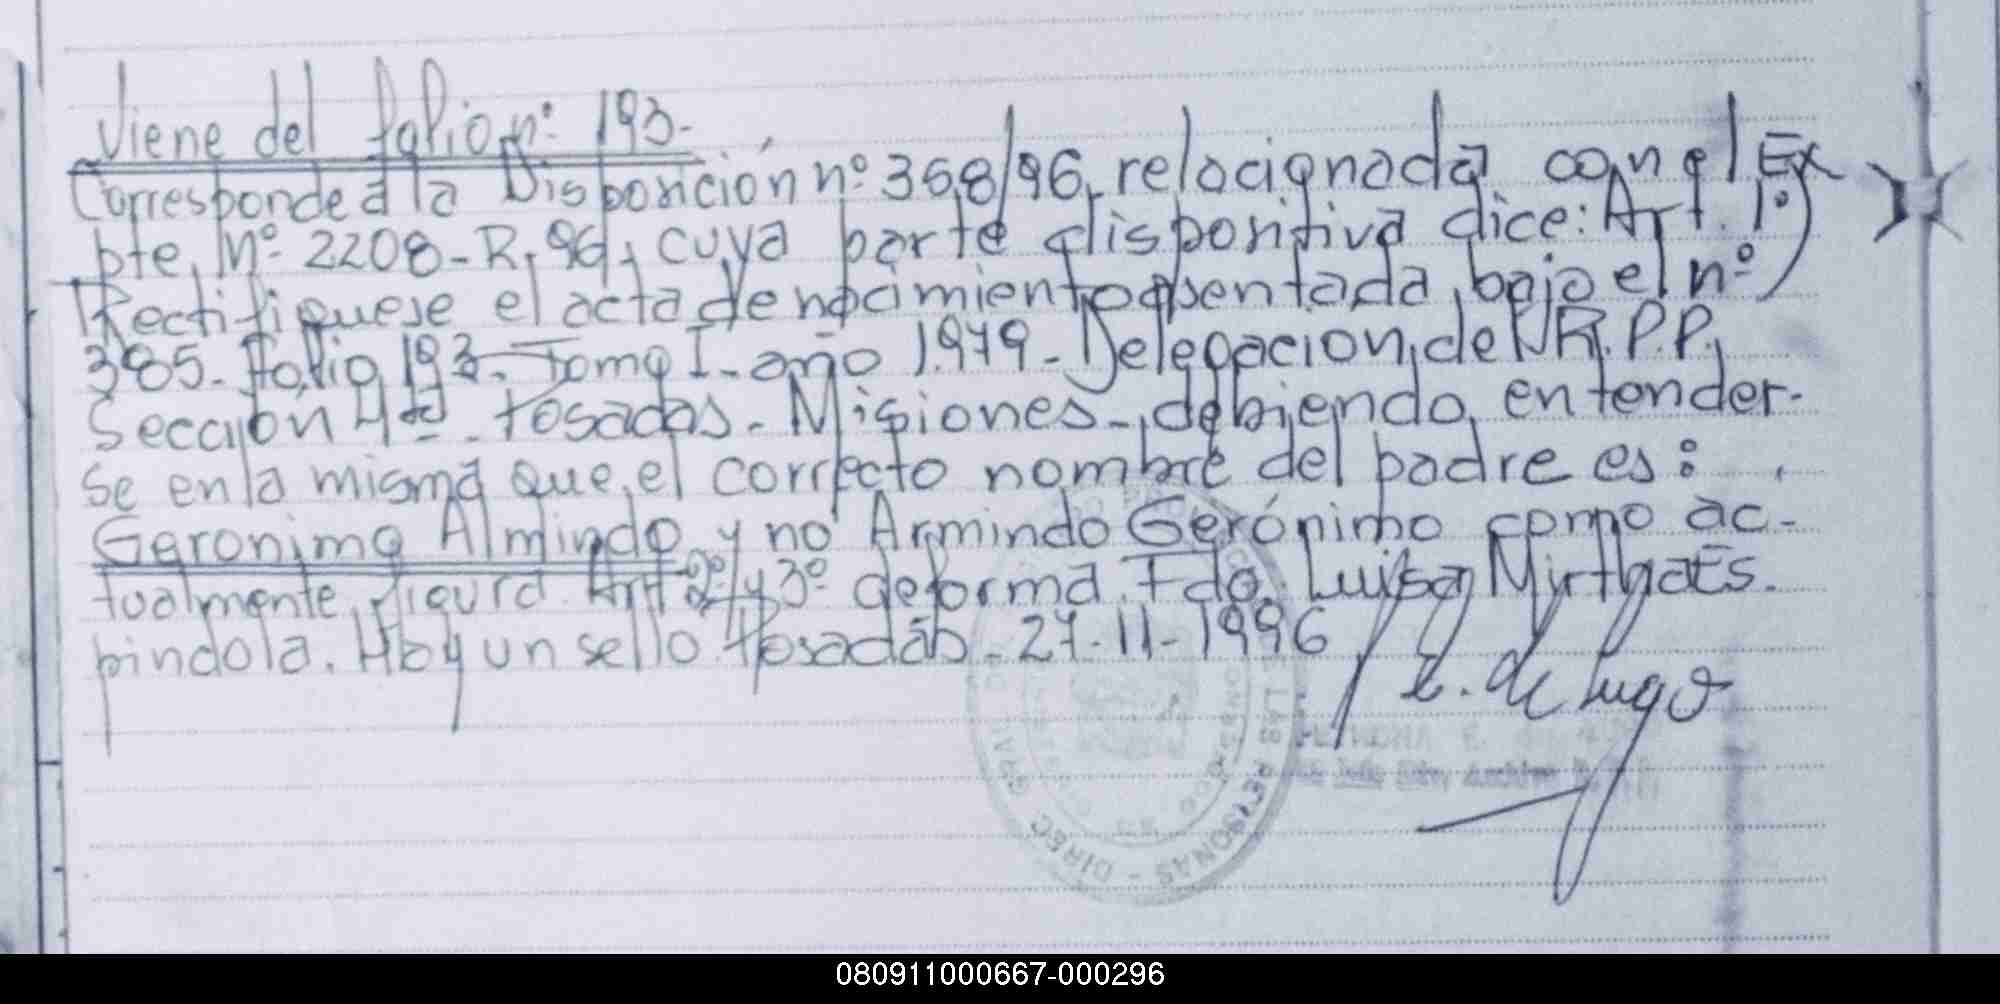 Viene del folio nº 193.-
Corresponde a la Disposición nº 368/96, relacionada con el Ex
pte, Nº 2208-R, 96, cuya parte dispositiva dice: Art. 1º)
Rectifiquese el acta de nacimiento asentada, bajo el nº
385. Folio 193. Tomo I. año 1.979. Delegacion, de R.P.P,
Sección 4ta. Posadas. Misiones-, debiendo, entender-
se en la misma que, el correcto nombre del padre es:
Geronimo Almindo y no Armindo Gerónimo como ac-
tualmente, figura. Art 2º y 3º de forma. Fdo. Luisa Mirtha Es.
pindola. Hay un sello. Posadas. 27-11-1996
E. de Lugo
LAS PERSONAS - DIREC
080911000667-000296